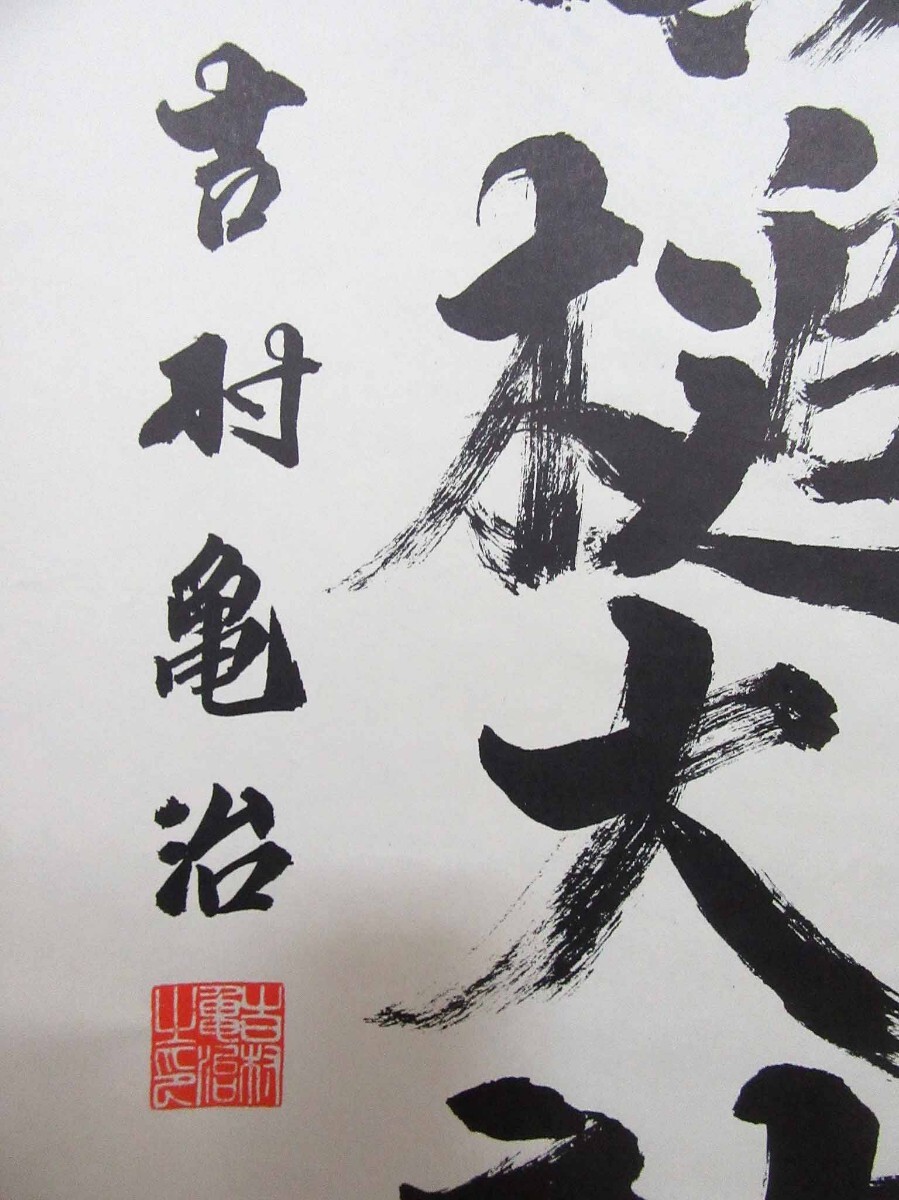 槌大
吉村亀治
吉村
亀治
之印